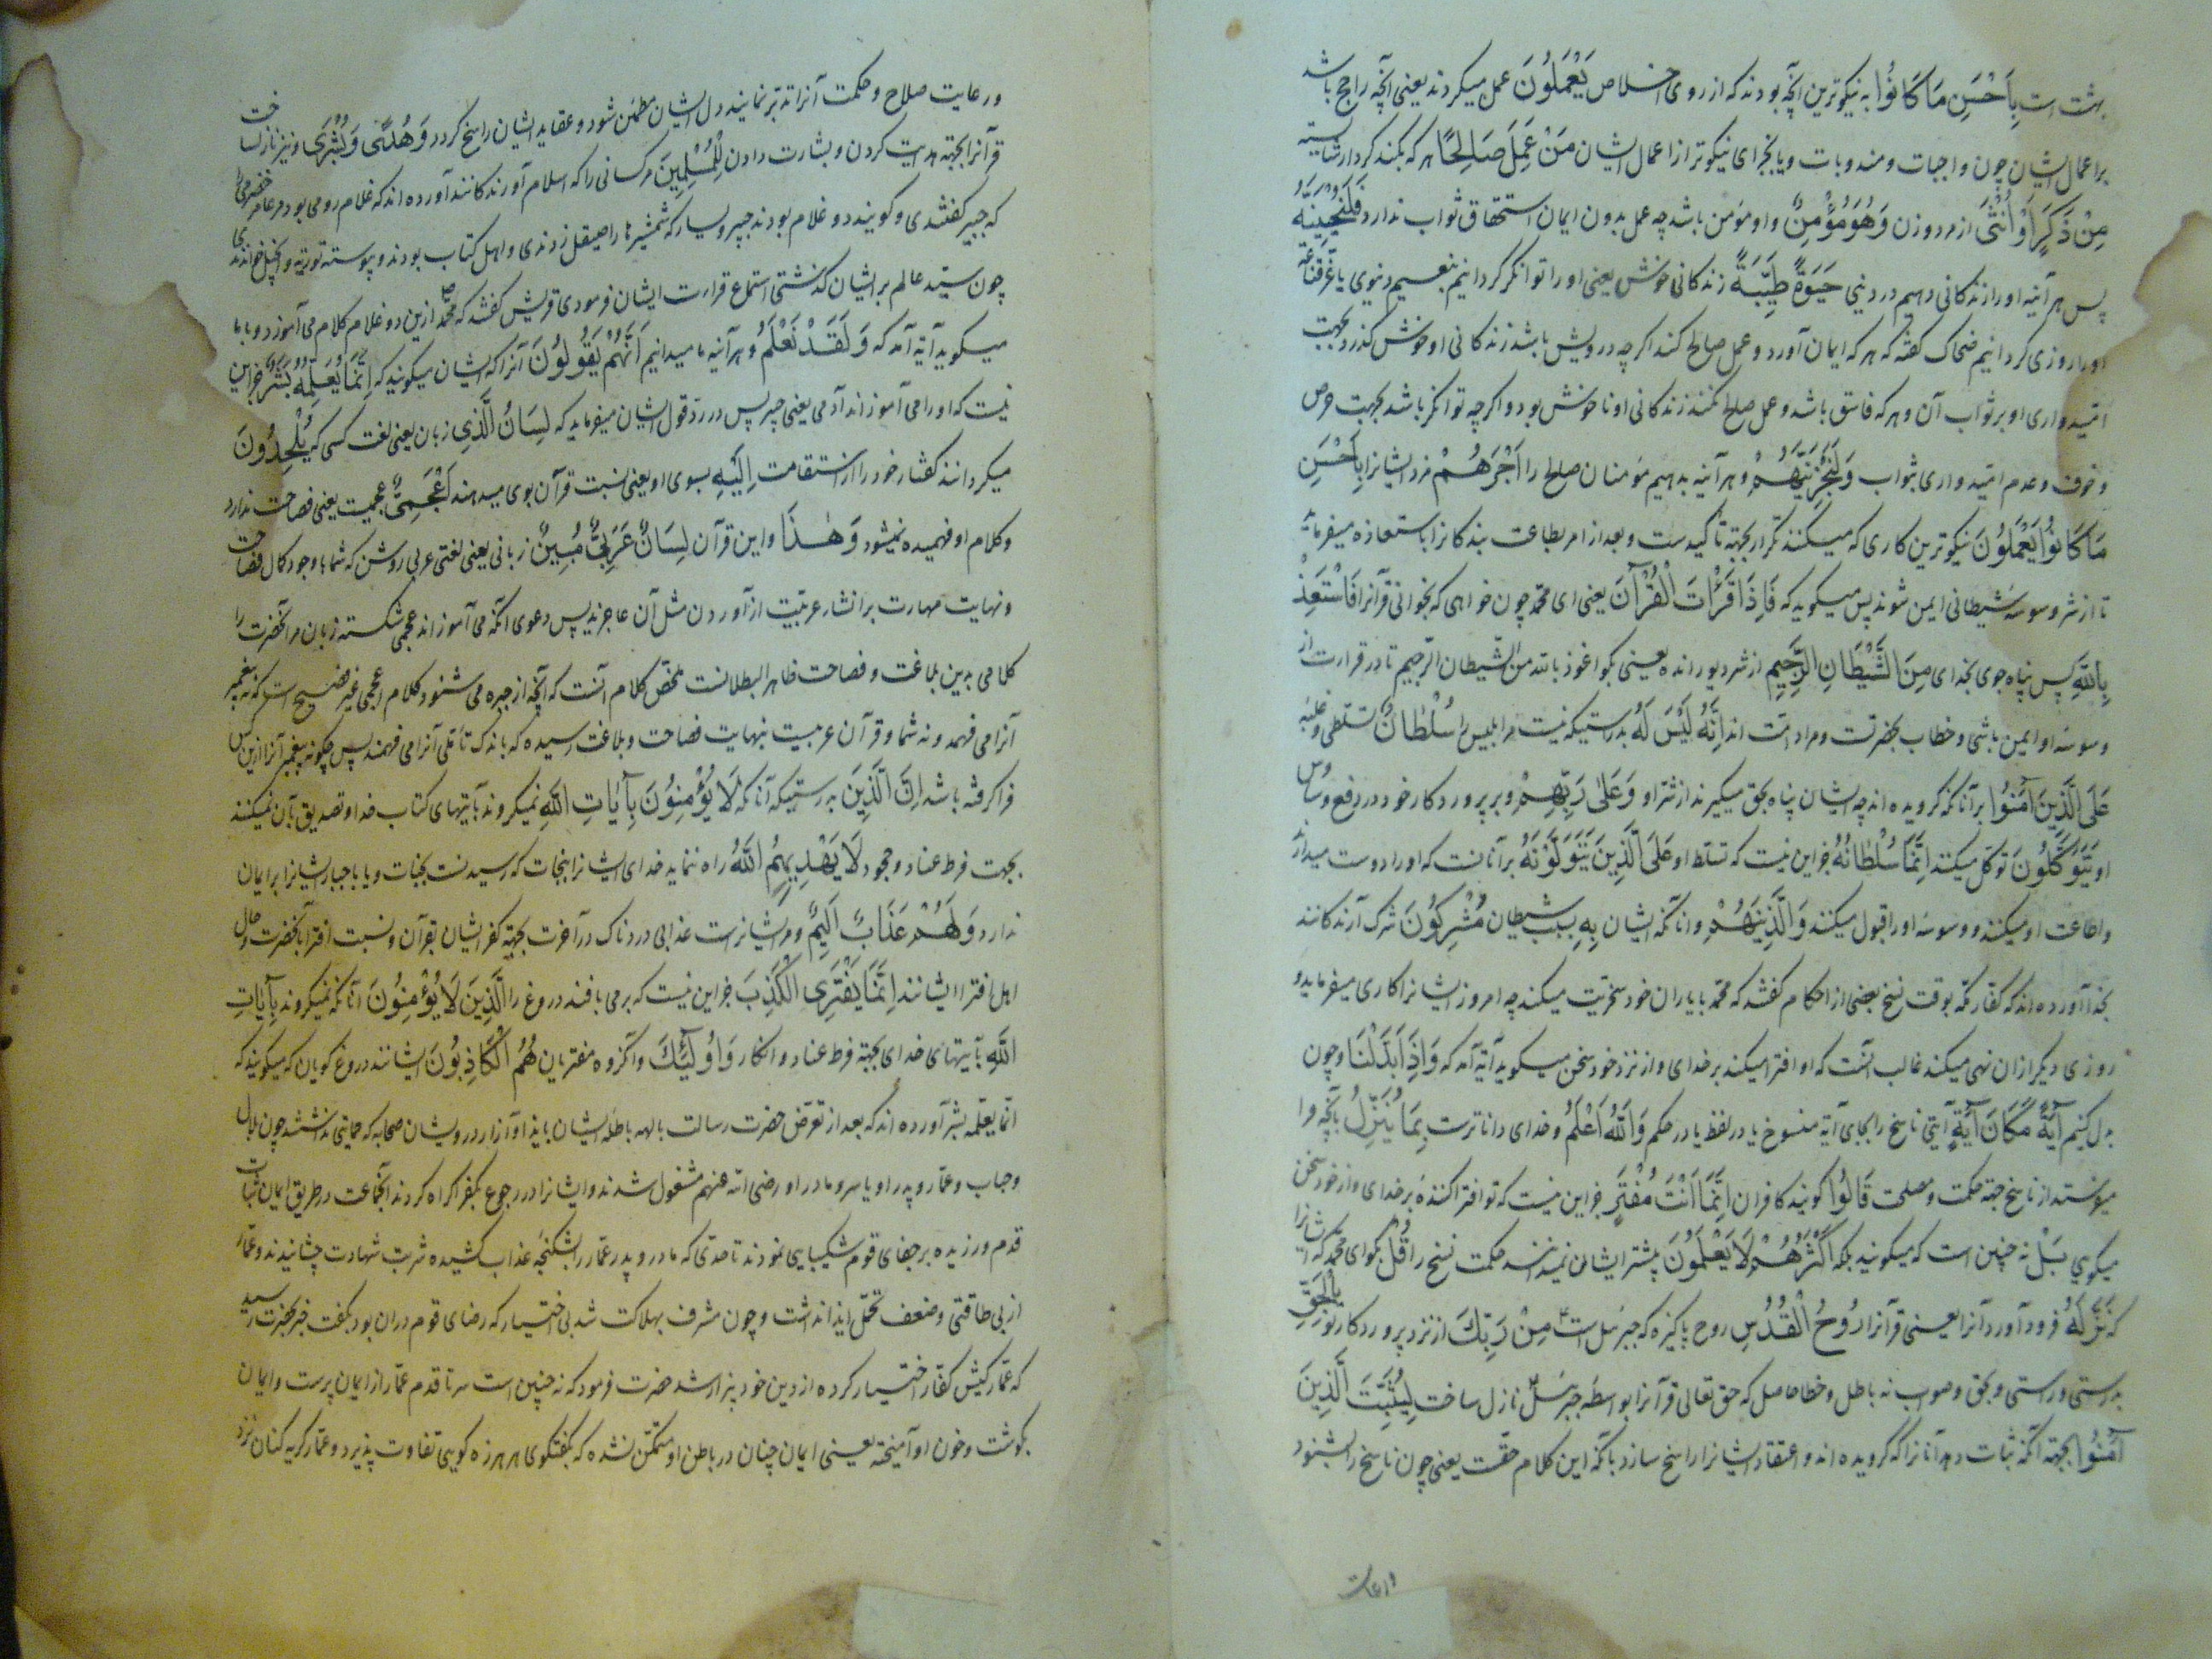 بهشت است بِأَحْسَنِ مَا كَانُوا به نیکوترین آنچه بودند که از روی اخلاص يَعْمَلُونَ عمل میکردند یعنی آنچه راجح باشد
بر اعمال ایشان چون واجبات و مندوبات و یا بجزای نیکوتر از اعمال ایشان مَنْ عَمِلَ صَالِحًا هر که بکند کردار شایسته
مِنْ ذَكَرٍ أَوْ أُنْثَىٰ از مرد و زن وَهُوَ مُؤْمِنٌ و او مؤمن باشد چه عمل بدون ایمان استحقاق ثواب ندارد فَلَنُحْيِيَنَّهُ
پس هر آینه او را زندکانی دهیم در دنیی حَيَوةً طَيِّبَةً زندکانی خوش یعنی او را توانکر کردانیم بنعیم دنیوی یا
او را روزی کردانیم ضحاک کفته که هر که ایمان آورد و عمل صالح کند اکرچه درویش باشد زندکانی او خوش کذرد بجهت
امیدواری او بر ثواب آن و هر که فاسق باشد و عمل صالح نکند زندکانی او ناخوش بود و اکرچه توانکر باشد بجهت حرص
و خوف و عدم امیدواری بثواب وَلَنَجْزِيَنَّهُمْ و هر آینه بدهیم مؤمنان صالح را أَجْرَهُمْ مزد ایشانرا بِأَحْسَنِ
مَا كَانُوا يَعْمَلُونَ نیکوترین کاری که میکنند تکرار بجهته تاکیدست و بعد از امر بطاعت بندکانرا باستعاذه میفرماید
تا از شر وسوسه شیطانی ایمن شوند پس میکوید که فَإِذَا قَرَأْتَ الْقُرْآنَ یعنی ای محمد چون خواهی که بخوانی قرآنرا فَاسْتَعِذْ
بِاللَّهِ پس پناه جوی بخدای مِنَ الشَّيْطَانِ الرَّجِيمِ از شر دیو رانده یعنی بکو اعوذ بالله من الشیطان الرجیم تا در قراءت از
وسوسه او ایمن باشی و خطاب بحضرتست و مراد امت اند إِنَّهُ لَيْسَ لَهُ بدرستیکه نیست مر ابلیس را سُلْطَانٌ تسلطی و غلبه
عَلَى الَّذِينَ آمَنُوا بر آنانکه کرویده اند چه ایشان پناه بحق میکیرند از شر او وَعَلَىٰ رَبِّهِمْ و بر پروردکار خود در دفع وساوس
او يَتَوَكَّلُونَ توکل میکنند إِنَّمَا سُلْطَانُهُ جز این نیست که تسلط او عَلَى الَّذِينَ يَتَوَلَّوْنَهُ بر آنانست که او را دوست میدارند
و اطاعت او میکنند و وسوسه او را قبول میکنند وَالَّذِينَ هُمْ و انانکه ایشان بِهِ بسبب شیطان مُشْرِكُونَ شرک آرند کانند
بخدا آورده اند که کفار مکه بوقت نسخ بعضی از احکام کفتند که محمد با یاران خود سخریت میکند چه امروز ایشانرا کاری میفرماید و
روزی دیکر ازان نهی میکند غالب آنست که او افترا میکند بر خدای و از نزد خود سخن میکوید آیة آمد که وَإِذَا بَدَّلْنَا و چون
بدل کنیم آيَةً مَكَانَ آيَةٍ آیتی ناسخ را بجای آیة منسوخ یا در لفظ یا در حکم وَاللَّهُ أَعْلَمُ و خدای داناترست بِمَا يُنَزِّلُ بآنچه فرو
میفرستد از ناسخ جهته حکمت و مصلحت قَالُوا کویند کافران إِنَّمَا أَنْتَ مُفْتَرٍ جز این نیست که تو افترا کننده بر خدای و از خود سخن
میکوئی بَلْ نه چنین است که میکویند بلکه أَكْثَرُهُمْ لَا يَعْلَمُونَ بیشتر ایشان نمیدانند حکمت نسخ را قُلْ بکو ای محمد که ایشانرا
که نَزَّلَهُ فرود آورد آنرا یعنی قرآنرا رُوحُ الْقُدُسِ روح پاکیزه که جبرئیل است مِنْ رَبِّكَ از نزد پروردکار تو بِالْحَقِّ
بدرستی و راستی و بحق و صواب نه باطل و خطا حاصل که حق تعالی قرآنرا بواسطه جبرئیل نازل ساخت لِيُثَبِّتَ الَّذِينَ
آمَنُوا بجهته آنکه ثبات دهد آنانرا که کرویده اند و اعتقاد ایشانرا راسخ سازد بآنکه این کلام حقست یعنی چون ناسخ را بشنود
و رعایت
و رعایت صلاح و حکمت آنرا تدبر نمایند دل ایشان مطمئن شود و عقاید ایشان راسخ کردد وَهُدًى وَبُشْرَىٰ و نیز نازل ساخت
قرآنرا بجهته هدایت کردن و بشارت دادن لِلْمُسْلِمِينَ مر کسانی را که اسلام آورند کانند آورده اند که غلام رومی بود مر عامر حضرمی را
که جبر کفتندی و کویند دو غلام بودند جبر و یسار که شمشیرها را صیقل زدندی و اهل کتاب بودند و پیوسته توریة و انجیل خواندندی
چون سید عالم بر ایشان کذشتی استماع قراءت ایشان فرمودی قریش کفتند که محمد ازین دو غلام کلام می آموزد و با ما
میکوید آیة آمد که وَلَقَدْ نَعْلَمُ و هر آینه ما میدانیم أَنَّهُمْ يَقُولُونَ آنرا که ایشان میکویند که إِنَّمَا يُعَلِّمُهُ بَشَرٌ جز این
نیست که او را می آموزاند آدمی یعنی جبر پس در رد قول ایشان میفرماید که لِسَانُ الَّذِي زبان یعنی لغت کسی که يُلْحِدُونَ
میکردانند کفتار خود را از استقامت إِلَيْهِ بسوی او یعنی نسبت قرآن بوی میدهند أَعْجَمِيٌّ عجمیت یعنی فصاحت ندارد
و کلام او فهمیده نمیشود وَهَٰذَا و این قرآن لِسَانٌ عَرَبِيٌّ مُبِينٌ زبانی یعنی لغتی عربی روشن که شما با وجود کمال فصاحت
و نهایت مهارت بر انشاء عربیت از آوردن مثل آن عاجزید پس دعوی آنکه می آموزاند عجمی شکسته زبان مر آنحضرت را
کلامی بدین بلاغت و فصاحت ظاهر البطلانست ملخص کلام آنست که آنچه از جبر می شنود کلام اعجمی غیر فصیح است که نه پیغمبر
آنرا می فهمد و نه شما و قرآن عربیت بنهایت فصاحت و بلاغت رسیده که باندک تاملی آنرا می فهمند پس چکونه پیغمبر آنرا ازین کس
فرا کرفته باشد إِنَّ الَّذِينَ بدرستیکه آنانکه لَا يُؤْمِنُونَ بِآيَاتِ اللَّهِ نمیکروند بآیتهای کتاب خدا و تصدیق بآن نمیکنند
بجهت فرط عناد و جحود لَا يَهْدِيهِمُ اللَّهُ راه ننماید خدای ایشانرا بنجات که رسیدنست بجنات و یا باجبار ایشانرا بر ایمان
ندارد وَلَهُمْ عَذَابٌ أَلِيمٌ و مر ایشانرست عذابی دردناک در آخرت بجهته کفر ایشان بقرآن و نسبت افترا بآنحضرت و حال
اهل افترا ایشانند إِنَّمَا يَفْتَرِي الْكَذِبَ جز این نیست که بر می بافند دروغ را الَّذِينَ لَا يُؤْمِنُونَ آنانکه نمیکروند بِآيَاتِ
اللَّهِ بآیتهای خدای بجهته فرط عناد و انکار وَأُولَٰئِكَ و آنکروه مفتریان هُمُ الْكَاذِبُونَ ایشانند دروغ کویان که میکویند که
انما یعلمه بشر آورده اند که بعد از تعرض حضرت رسالت بالهه باطله ایشان بایذا و آزار درویشان صحابه که حمایتی نداشتند چون بلال
و خباب و عمار و پدر او یاسر و مادر او رضی الله عنهم مشغول شدند و ایشانرا در رجوع بکفر اکراه کردند آنجماعت در طریق ایمان ثبات
قدم ورزیده بر جفای قوم شکیبایی نمودند تا حدی که مادر و پدر عمار را شکنجه عذاب کشیده شربت شهادت چشانیدند و عمار
از بی طاقتی و ضعف تحمل ایذا نداشت و چون مشرف بهلاکت شد بی اختیار که رضای قوم دران بود بکفت خبر بحضرت رسید
که عمار کیش کفار اختیار کرده از دین خود بیزار شد حضرت فرمود که نه چنین است سر تا قدم عمار از ایمان پرست و ایمان
بکوشت و خون او آمیخته یعنی ایمان چنان در باطن او متمکن نشده که بکفتکوی هر هرزه کویی تفاوت پذیرد و عمار کریه کنان نزد